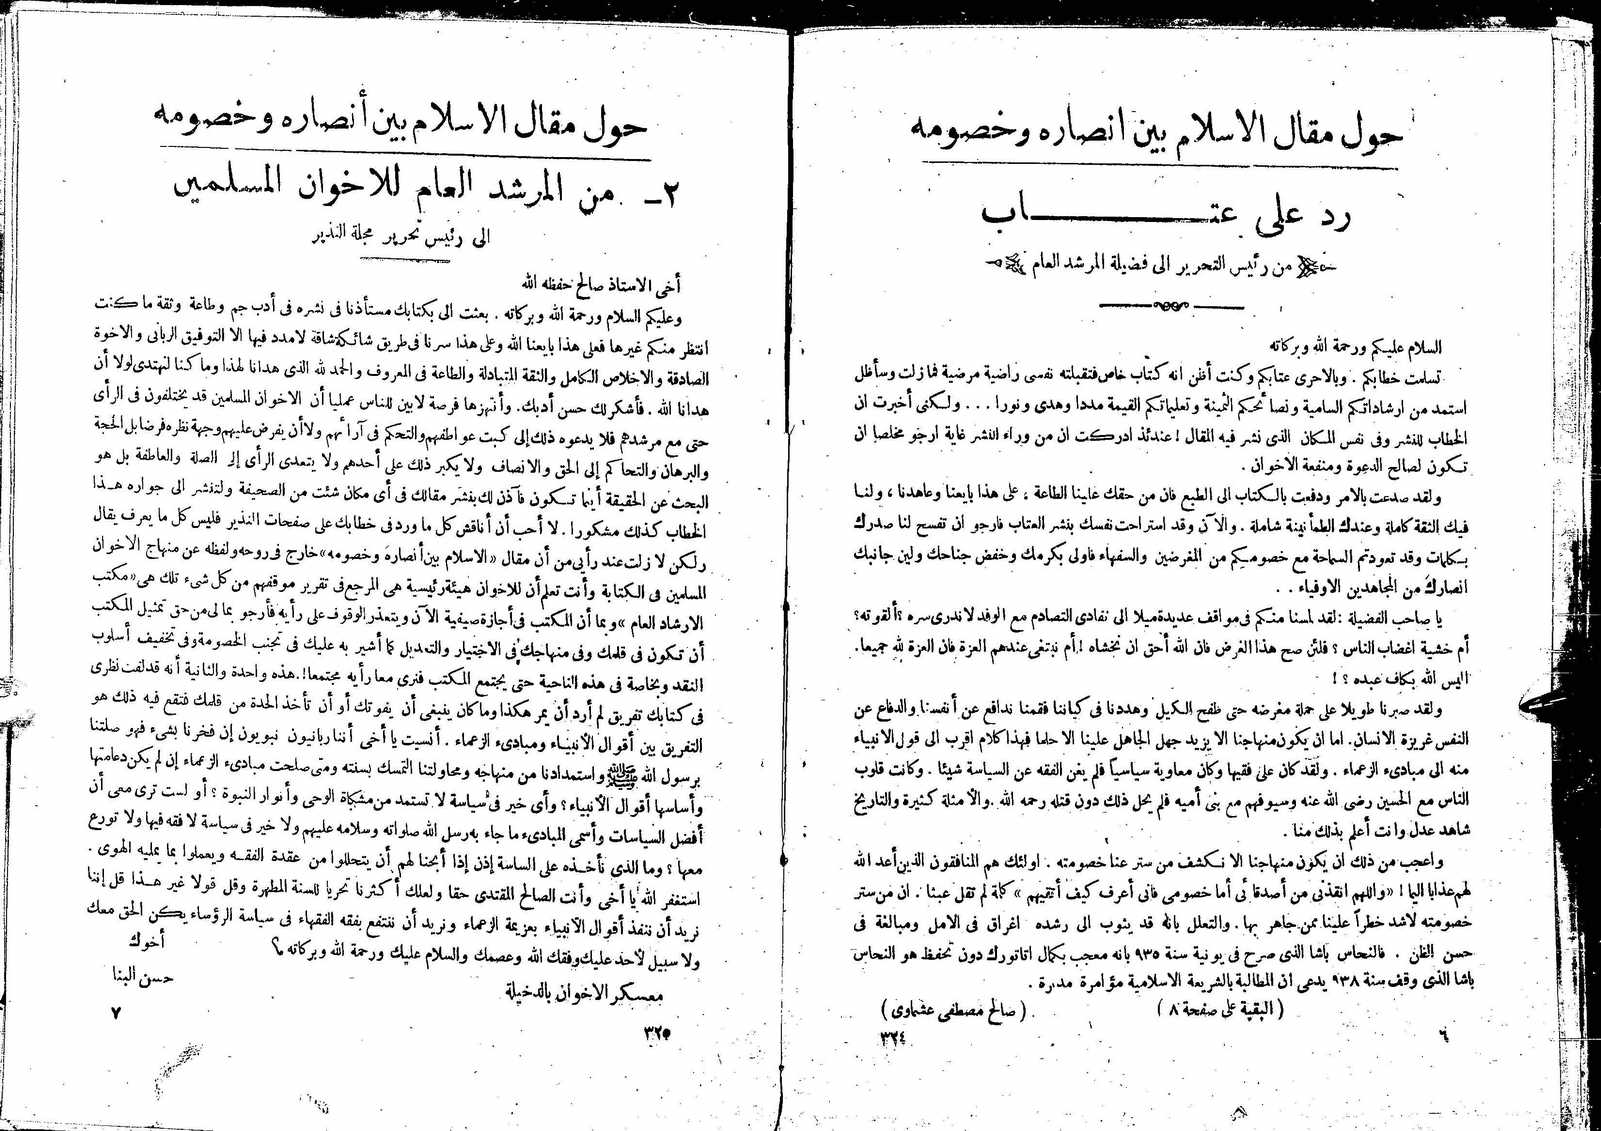 حول مقال الاسلام بين انصاره وخصومه
رد على عتاب
من رئيس التحرير الى فضيلة المرشد العام
السلام عليكم ورحمة الله وبركاته
تسلمت خطابكم . وبالاحرى عتابكم وكنت أظن انه كتاب خاص فتقبلته نفسى راضية مرضية فما زلت وسأظل
استمد من ارشاداتكم السامية ونصائحكم الثمينة وتعليماتكم القيمة مددا وهدى ونورا . . . ولكنى أخبرت ان
الخطاب للنشر وفى نفس المكان الذى نشر فيه المقال ! عندئذ ادركت ان من وراء النشر غاية ارجو مخلصا ان
تكون لصالح الدعوة ومنفعة الاخوان .
ولقد صدعت بالامر ودفعت بالكتاب الى الطبع فان من حقك علينا الطاعة ، على هذا بايعنا وعاهدنا ، ولنا
فيك الثقة كاملة وعندك الطمأنينة شاملة . والآن وقد استراحت نفسك بنشر العتاب فارجو ان تفسح لنا صدرك
بكلمات وقد تعودتم السماحة مع خصومكم من المغرضين والسفهاء فاولى بكرمك وخفض جناحك ولين جانبك
انصارك من المجاهدين الاوفياء . .
يا صاحب الفضيلة : لقد لمسنا منكم فى مواقف عديدة ميلا الى تفادى التصادم مع الوفد لا ندرى سره ؟ ألقوته ؟
أم خشية اغضاب الناس ؟ فلئن صح هذا الغرض فان الله أحق ان نخشاه ! أم نبتغى عندهم العزة فان العزة لله جميعا.
اليس الله بكاف عبده ؟ !
ولقد صبرنا طويلا على حملة مغرضه حتى طفح الكيل وهددنا فى كياننا فقمنا ندافع عن أنفسنا والدفاع عن
النفس غريزة الانسان. اما ان يكون منهاجنا الا يزيد جهل الجاهل علينا الا حلما فهذا كلام اقرب الى قول الانبياء
منه الى مبادىء الزعماء . ولقد كان على فقيها وكان معاوية سياسياً فلم يغن الفقه عن السياسة شيئا . وكانت قلوب
الناس مع الحسين رضى الله عنه وسيوفهم مع بنى أميه فلم يحل ذلك دون قتله رحمه الله .والامثلة كثيرة والتاريخ
شاهد عدل وانت أعلم بذلك منا .
واعجب من ذلك ان يكون منهاجنا الا نكشف من ستر عنا خصومته . اولئك هم المنافقون الذين أعد الله
لهم عذابا اليما ! «واللهم انقذنى من أصدقائى أما خصومى فانى أعرف كيف أتقيهم » كلمة لم تقل عبثا . ان من ستر
خصومته لاشد خطراً علينا ممن جاهر بها. والتعلل بانه قد يثوب الى رشده اغراق فى الامل ومبالغة فى
حسن الظن . فالنحاس باشا الذى صرح فى يونية سنة ٩٣٥ بانه معجب بكمال اتاتورك دون تحفظ هو النحاس
باشا الذى وقف سنة ٩٣٨ يدعى ان المطالبة بالشريعة الاسلامية مؤامرة مدبرة .
( البقية على صفحة ٨ ) ( صالح مصطفى عشماوى )
٦ ٣٢٤
حول مقال الاسلام بين أنصاره وخصومه
٢ـ من المرشد العام للاخوان المسلمين
الى رئيس تحرير مجلة النذير
أخى الاستاذ صالح حفظه الله
وعليكم السلام ورحمة الله وبركاته . بعثت الى بكتابك مستأذنا فى نشره فى أدب جم وطاعة وثقة ما كنت
انتظر منكم غيرها فعلى هذا بايعنا الله وعلى هذا سرنا فى طريق شائكة شاقة لا مدد فيها الا التوفيق الربانى والاخوة
الصادقة والاخلاص الكامل والثقة المتبادلة والطاعة فى المعروف والحمد لله الذى هدانا لهذا وما كنا لنهتدى لولا أن
هدانا الله . فأشكر لك حسن أدبك. وأنتهزها فرصة لابين للناس عمليا أن الاخوان المسلمين قد يختلفون فى الرأى
حتى مع مرشدهم فلا يدعوه ذلك إلى كبت عواطفهم والتحكم فى آرائهم ولا أن يفرض عليهم وجهة نظره فرضا بل الحجة
والبرهان والتحاكم إلى الحق والانصاف ولا يكبر ذلك على أحدهم ولا يتعدى الرأى إلى الصلة والعاطفة بل هو
البحث عن الحقيقة أينما تكون فآذن لك بنشر مقالك فى أى مكان شئت من الصحيفة ولتنشر الى جواره هـذا
الخطاب كذلك مشكورا . لا أحب أن أناقش كل ما ورد فى خطابك على صفحات النذير فليس كل ما يعرف يقال
ولكن لا زلت عند رأيى من أن مقال «الاسلام بين أنصاره وخصومه» خارج فى روحه ولفظه عن منهاج الاخوان
المسلمين فى الكتابة وأنت تعلم أن للاخوان هيئة رئيسية هى المرجع فى تقرير موقفهم من كل شىء تلك هى «مكتب
الارشاد العام » وبما أن المكتب فى أجازة صيفية الآن ويتعذر الوقوف على رأيه فأرجو بما لى من حق تمثيل المكتب
أن تكون فى قلمك وفى منهاجك فى الاختيار والتعديل كما أشير به عليك فى تجنب الخصومة وفى تخفيف أسلوب
النقد وبخاصة فى هذه الناحية حتى يجتمع المكتب فنرى معا رأيه مجتمعا! . هذه واحدة والثانية أنه قد لفت نظرى
فى كتابك تفريق لم أرد أن يمر هكذا وما كان ينبغى أن يفوتك أو أن تأخذ الحدة من قلمك فتقع فيه ذلك هو
التفريق بين أقوال الأنبياء ومبادىء الزعماء . أنسيت يا أخى أننا ربانيون نبويون إن فخرنا بشىء فهو صلتنا
برسول الله ﷺ واستمدادنا من منهاجه ومحاولتنا التمسك بسنته ومتى صلحت مبادىء الزعماء إن لم يكن دعامتها
وأساسها أقوال الأنبياء؟ وأى خير فى سياسة لا تستمد من مشكاة الوحى وأنوار النبوة ؟ أو لست ترى معى أن
أفضل السياسات وأسمى المبادىء ما جاء به رسل الله صلواته وسلامه عليهم ولا خير فى سياسة لا فقه فيها ولا تورع
معها ؟ وما الذى نأخذه على الساسة إذن إذا أبحنا لهم أن يتحللوا من عقدة الفقه ويعملوا بما يمليه الهوى .
استغفر الله يا أخى وأنت الصالح المقتدى حقا ولعلك أكثرنا تحريا للسنة المطهرة وقل قولا غير هـذا قل إننا
نريد أن ننفذ أقوال الأنبياء بعزيمة الزعماء ونريد أن ننتفع بفقه الفقهاء فى سياسة الرؤساء يكن الحق معك
ولا سبيل لأحد عليك وفقك الله وعصمك والسلام عليك ورحمة الله وبركاته
أخوك
معسكر الاخوان بالدخيلة حسن البنا
٣٢٥ ٧